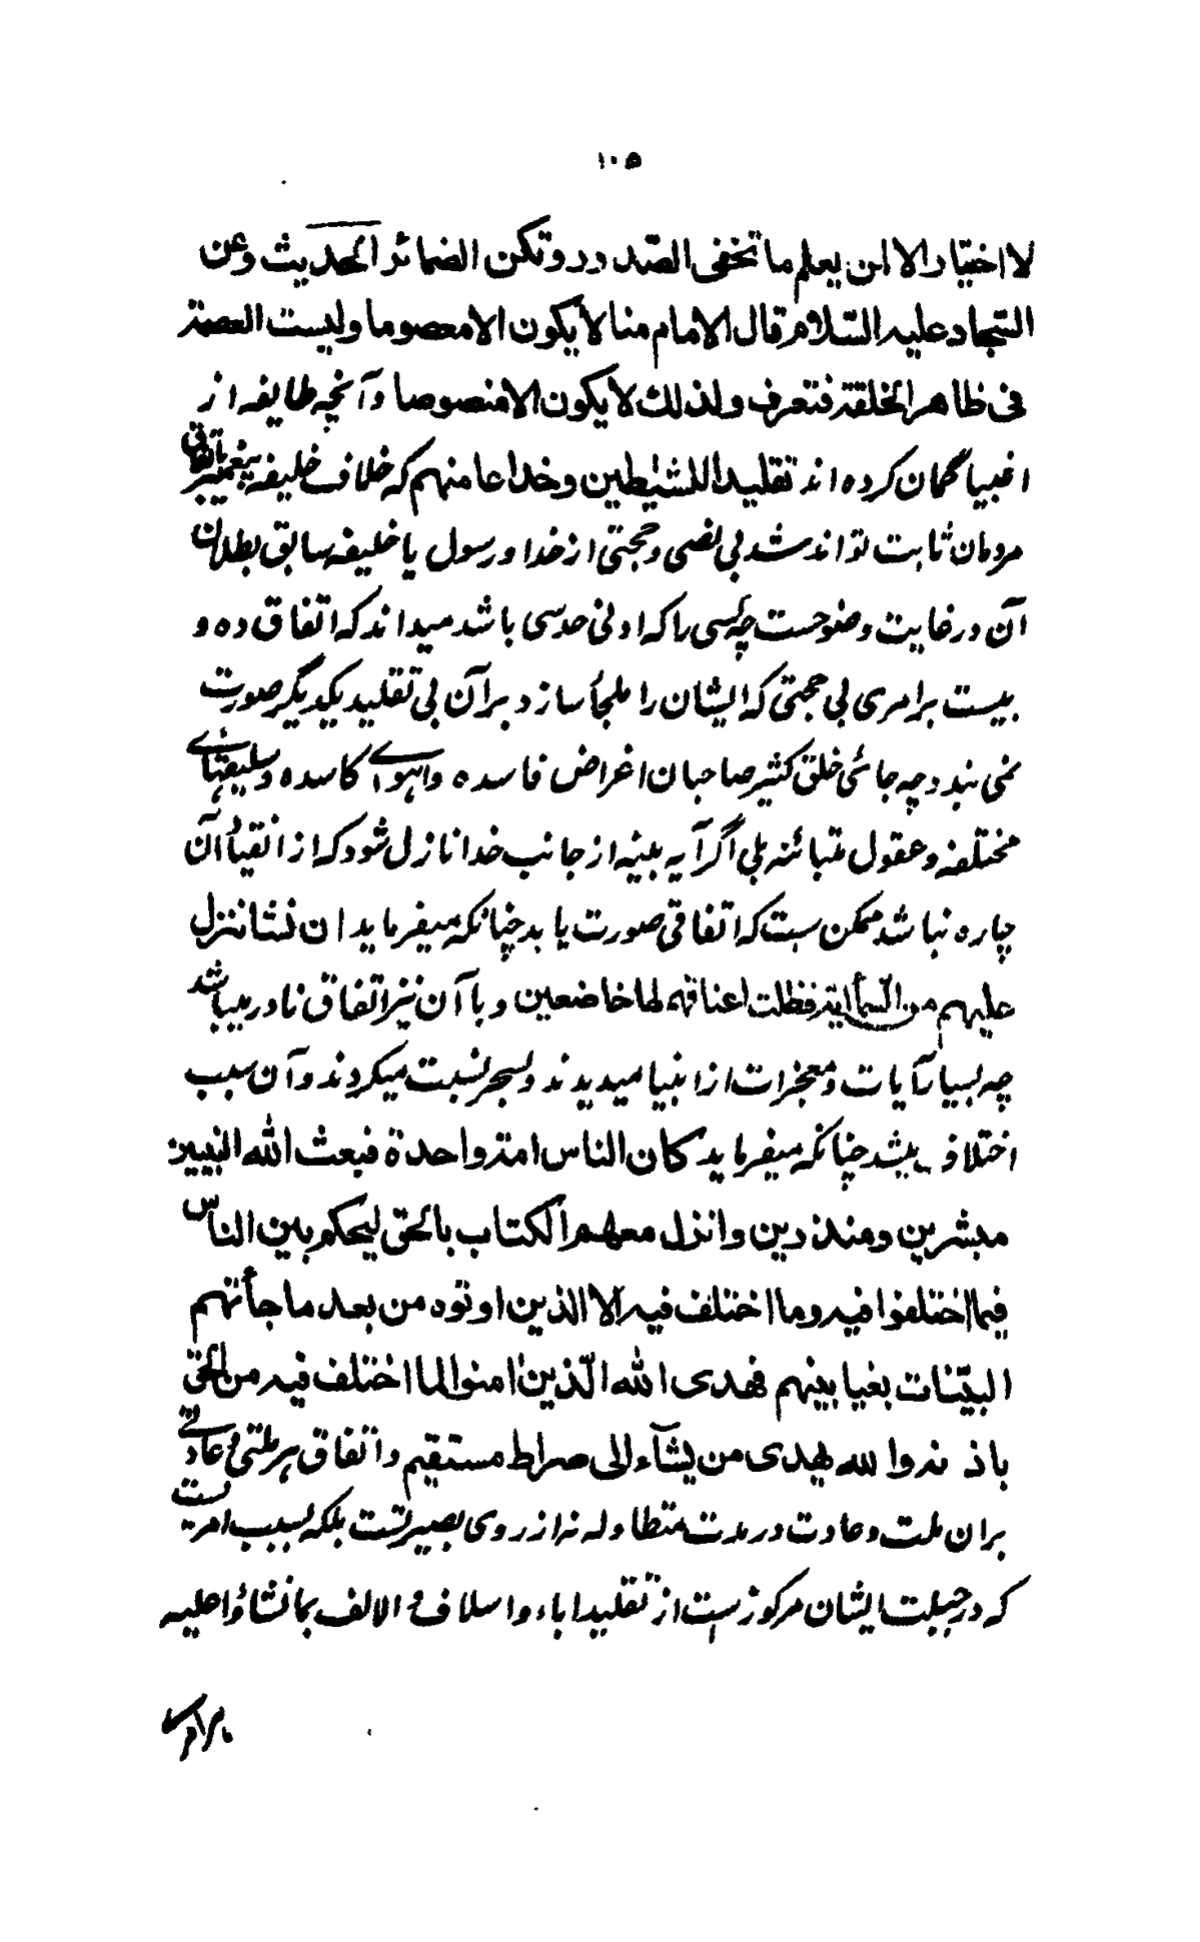 ۱۰۵
لا اختیار الا لمن یعلم ما تخفی الصّدور و تکن الضمائر الحدیث وعن
السّجاد علیه السّلام قال الامام منا لا یکون الا معصوما و لیست العصمة
فی ظاهر الخلقة فتعرف و لذلك لا یکون الا منصوصا و آنچه طایفه از
اغبیا گمان کرده اند تقلیدا للشیٰطین و خداعا منهم که خلافت خلیفه پیغمبر باتفاق
مردمان ثابت تواند شد بی نصی و حجتی از خدا و رسول یا خلیفه سابق بطلان
آن در غایت وضوحست چه کسی را که ادنی حدسی باشد میداند که اتفاق ده و
بیست بر امری بی حجتی که ایشان را ملجأ سازد بر آن بی تقلید یکدیگر صورت
نمی بندد چه جائی خلق کثیر صاحبان اغراض فاسده و اهوای کاسده و سلیقهای
مختلفه و عقول متبائنه بلی اگر آیه بینه از جانب خدا نازل شود که از انقیاد آن
چاره نباشد ممکن ست که اتفاقی صورت یابد چنانکه میفرماید ان نشا ننزل
علیهم من السّمأ ایة فظلت اعناقهم لها خاضعین و با آن نیز اتفاق نادر میباشد
چه بسیار آیات و معجزات از انبیا میدیدند و بسحر نسبت میکردند و آن سبب
اختلاف میشد چنانکه میفرماید کان الناس امة واحدة فبعث الله النبیین
مبشرین ومنذرین وانزل معهم الکتاب بالحق لیحکم بین الناس
فیما اختلفوا فیه وما اختلف فیه الا الذین اوتوه من بعد ما جأتهم
البیّنات بغیا بینهم فهدی الله الّذین اٰمنوا لما اختلف فیه من الحق
باذنه والله یهدی من یشآء الی صراط مستقیم و اتفاق هر ملتی و عادتے
بران ملت و عادت در مدت متطاوله نه از روی بصیرتست بلکه بسبب امریست
که در جبلت ایشان مرکوزست از تقلید اباء و اسلاف و الالف بما نشاؤا علیه